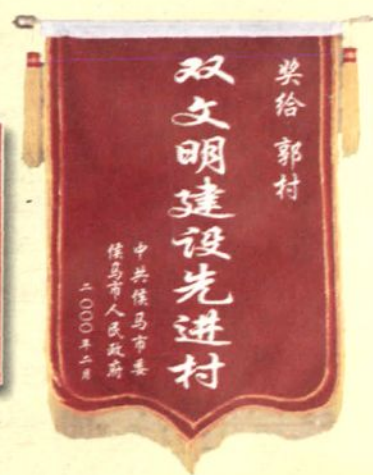 奖给 郭村
双文明建设先进村
中共侯马市委
侯马市人民政府
二〇〇〇年二月